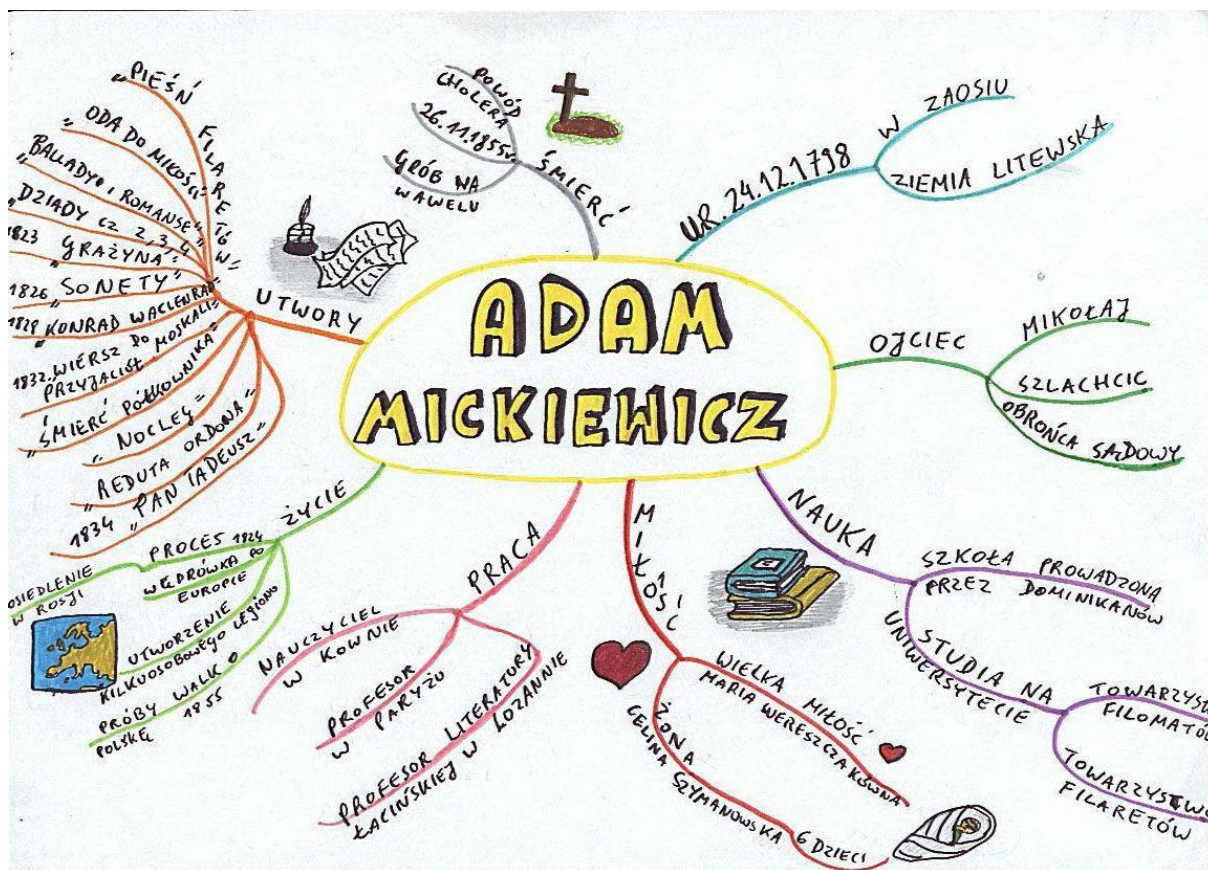 ADAM
MICKIEWICZ
UR. 24.12.1798
W ZAOSIU
ZIEMIA LITEWSKA
OJCIEC
MIKOŁAJ
SZLACHCIC
OBROŃCA SĄDOWY
NAUKA
SZKOŁA PROWADZONA
PRZEZ DOMINIKANÓW
STUDIA NA
UNIWERSYTECIE
TOWARZYSTW
FILOMATÓW
TOWARZYSTWO
FILARETÓW
MIŁOŚĆ
WIELKA MIŁOŚĆ
MARIA WERESZCZAKÓWNA
ŻONA
CELINA SZYMANOWSKA
6 DZIECI
PRACA
NAUCZYCIEL
W KOWNIE
PROFESOR
W PARYŻU
PROFESOR LITERATURY
ŁACIŃSKIEJ W LOZANNIE
ŻYCIE
PROCES 1824
OSIEDLENIE
W ROSJI
WĘDRÓWKA PO
EUROPIE
UTWORZENIE
KILKUOSOBOWEGO LEGIONU
PRÓBY WALK O
POLSKĘ 1855
UTWORY
„PIEŚŃ FILARETÓW"
„ODA DO MŁOŚCI"
„BALLADY I ROMANSE"
„DZIADY CZ 2,3,4"
1823 „GRAŻYNA"
1826 „SONETY"
1828 „KONRAD WACLENRAD"
1832. WIERSZ DO
PRZYJACIÓŁ MOSKALI"
„ŚMIERĆ PÓŁKOWNIKA"
„NOCLEG"
„REDUTA ORDONA"
1834 „PAN TADEUSZ"
ŚMIERĆ
POWÓD
CHOLERA
26.11.1855r.
GRÓB NA
WAWELU